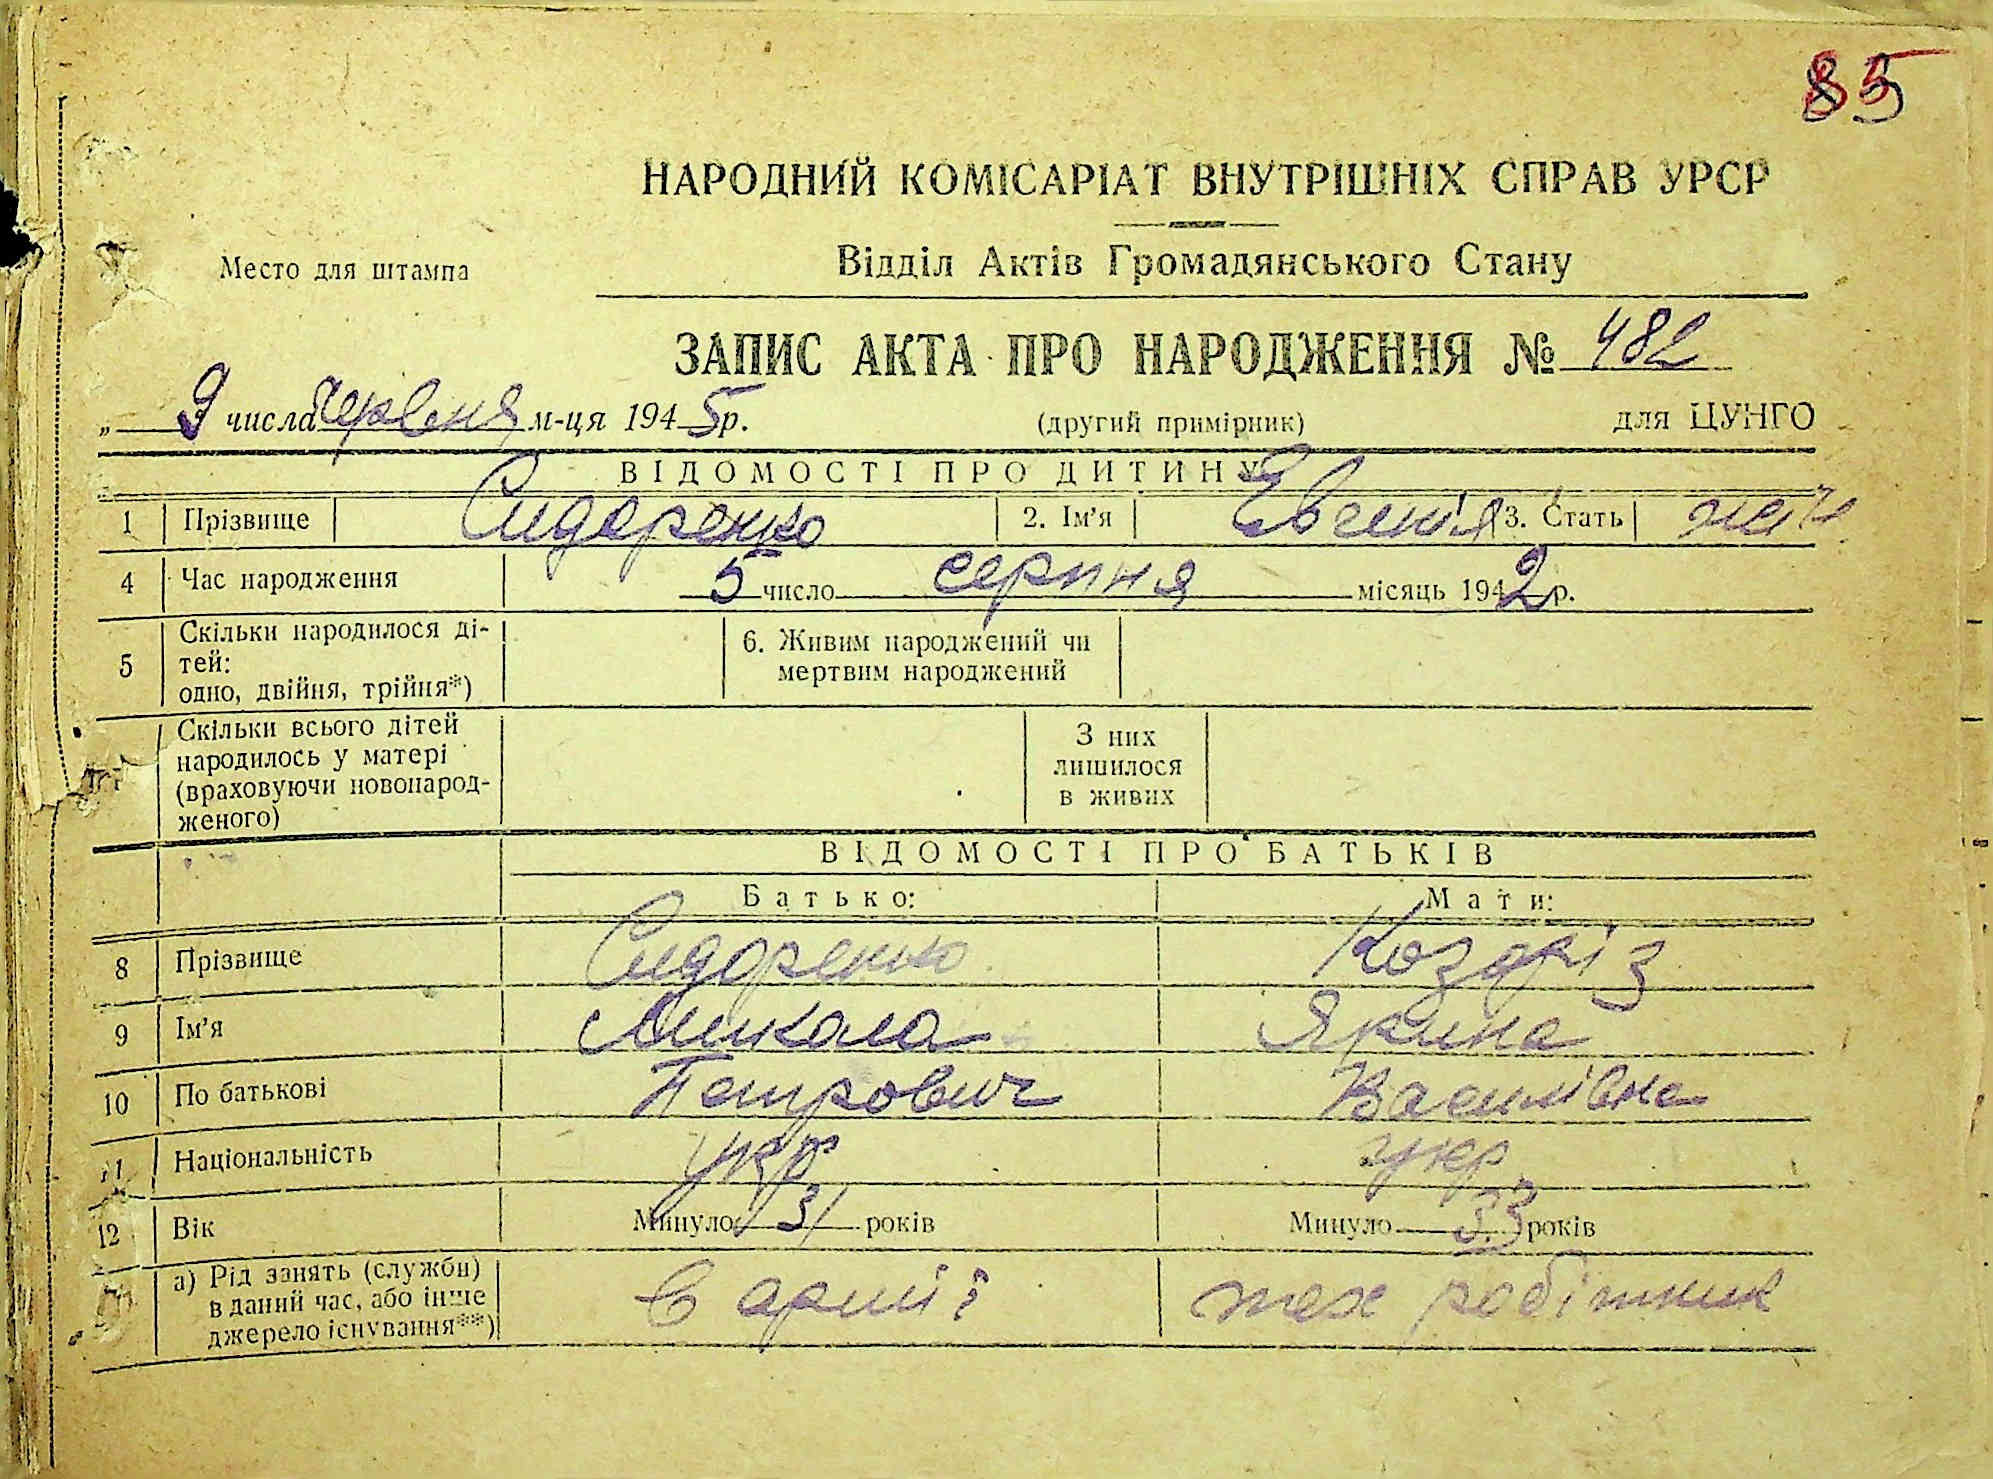 85
НАРОДНИЙ КОМІСАРІАТ ВНУТРІШНІХ СПРАВ УРСР
Место для штампа
Відділ Актів Громадянського Стану
ЗАПИС АКТА ПРО НАРОДЖЕННЯ № 482
„ 9 числа червня м-ця 1945 р. (другий примірник) для ЦУНГО
ВІДОМОСТІ ПРО ДИТИНУ
1 Прізвище Сидоренко 2. Ім'я Євгенія 3. Стать жін
4 Час народження 5 число серпня місяць 1942 р.
5 Скільки народилося ді-
тей:
одно, двійня, трійня*)
6. Живим народжений чи
мертвим народжений
Скільки всього дітей
народилось у матері
(враховуючи новонарод-
женого)
З них
лишилося
в живих
ВІДОМОСТІ ПРО БАТЬКІВ
Батько: Мати:
8 Прізвище Сидоренко Козаріз
9 Ім'я Микола Ярина
10 По батькові Петрович Василівна
11 Національність укр укр
12 Вік Минуло 31 років Минуло 33 років
а) Рід занять (служби)
в даний час, або інше
джерело існування**)
в армії тех робітник